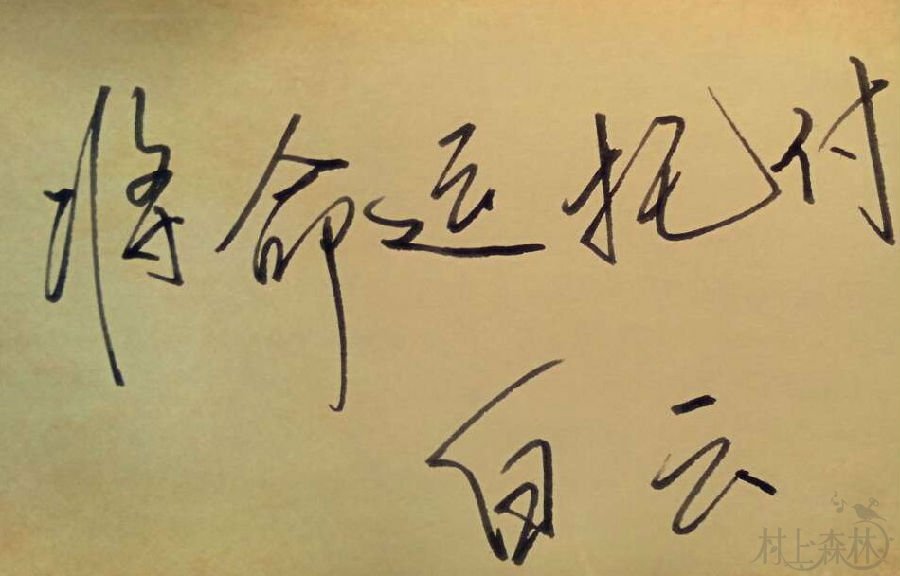 将命运托付
白云
村上森林